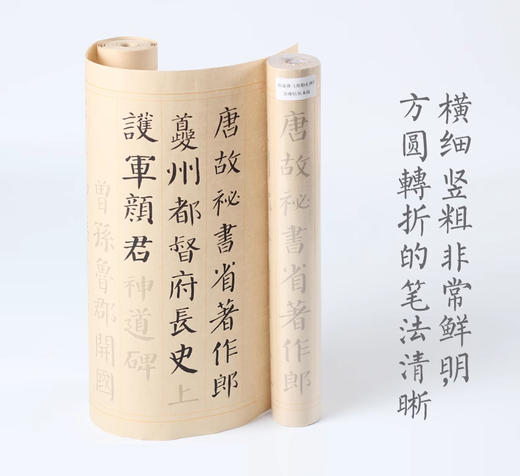 横细竖粗非常鲜明,
方圆轉折的笔法清晰
唐故祕書省著作郎
唐故祕書省著作郎
夔州都督府長史上
護軍顏君神道碑
曾孫魯郡開國